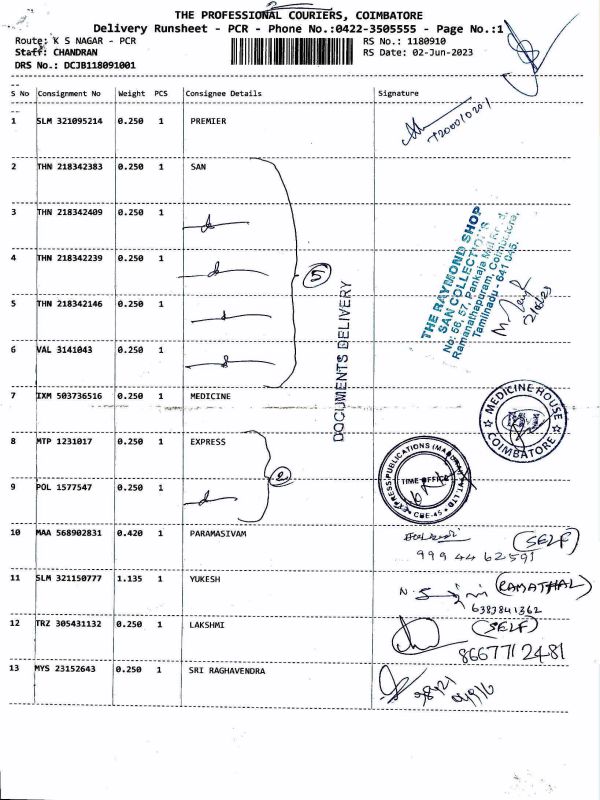 THE PROFESSIONAL COURIERS, COIMBATORE
Delivery Runsheet - PCR - Phone No.:0422-3505555 - Page No.:1
Route: K S NAGAR - PCR
RS No.: 1180910
Staff: CHANDRAN
RS Date: 02-Jun-2023
DRS No.: DCJB118091001
S No Consignment No Weight PCS Consignee Details Signature
1 SLM 321095214 0.250 1 PREMIER
2 THN 218342383 0.250 1 SAN
3 THN 218342409 0.250 1
4 THN 218342239 0.250 1
5 THN 218342146 0.250 1
6 VAL 3141043 0.250 1
5
THE RAYMOND SHOP
SAN COLLECTIONS
No: 56, 57, Pankaja Mill Road,
Ramanathapuram, Coimbatore,
Tamilnadu - 641 045.
DOCUMENTS DELIVERY
7 IXM 503736516 0.250 1 MEDICINE
MEDICINE HOUSE
COIMBATORE
8 MTP 1231017 0.250 1 EXPRESS
9 POL 1577547 0.250 1
2
EXPRESS PUBLICATIONS (MADURAI) PVT LTD
TIME OFFICE
CBE-45
10 MAA 568902831 0.420 1 PARAMASIVAM
(SELF)
999 44 62591
11 SLM 321150777 1.135 1 YUKESH
(RAMATHAL)
6383841362
12 TRZ 305431132 0.250 1 LAKSHMI
(SELF)
8667712481
13 MYS 23152643 0.250 1 SRI RAGHAVENDRA